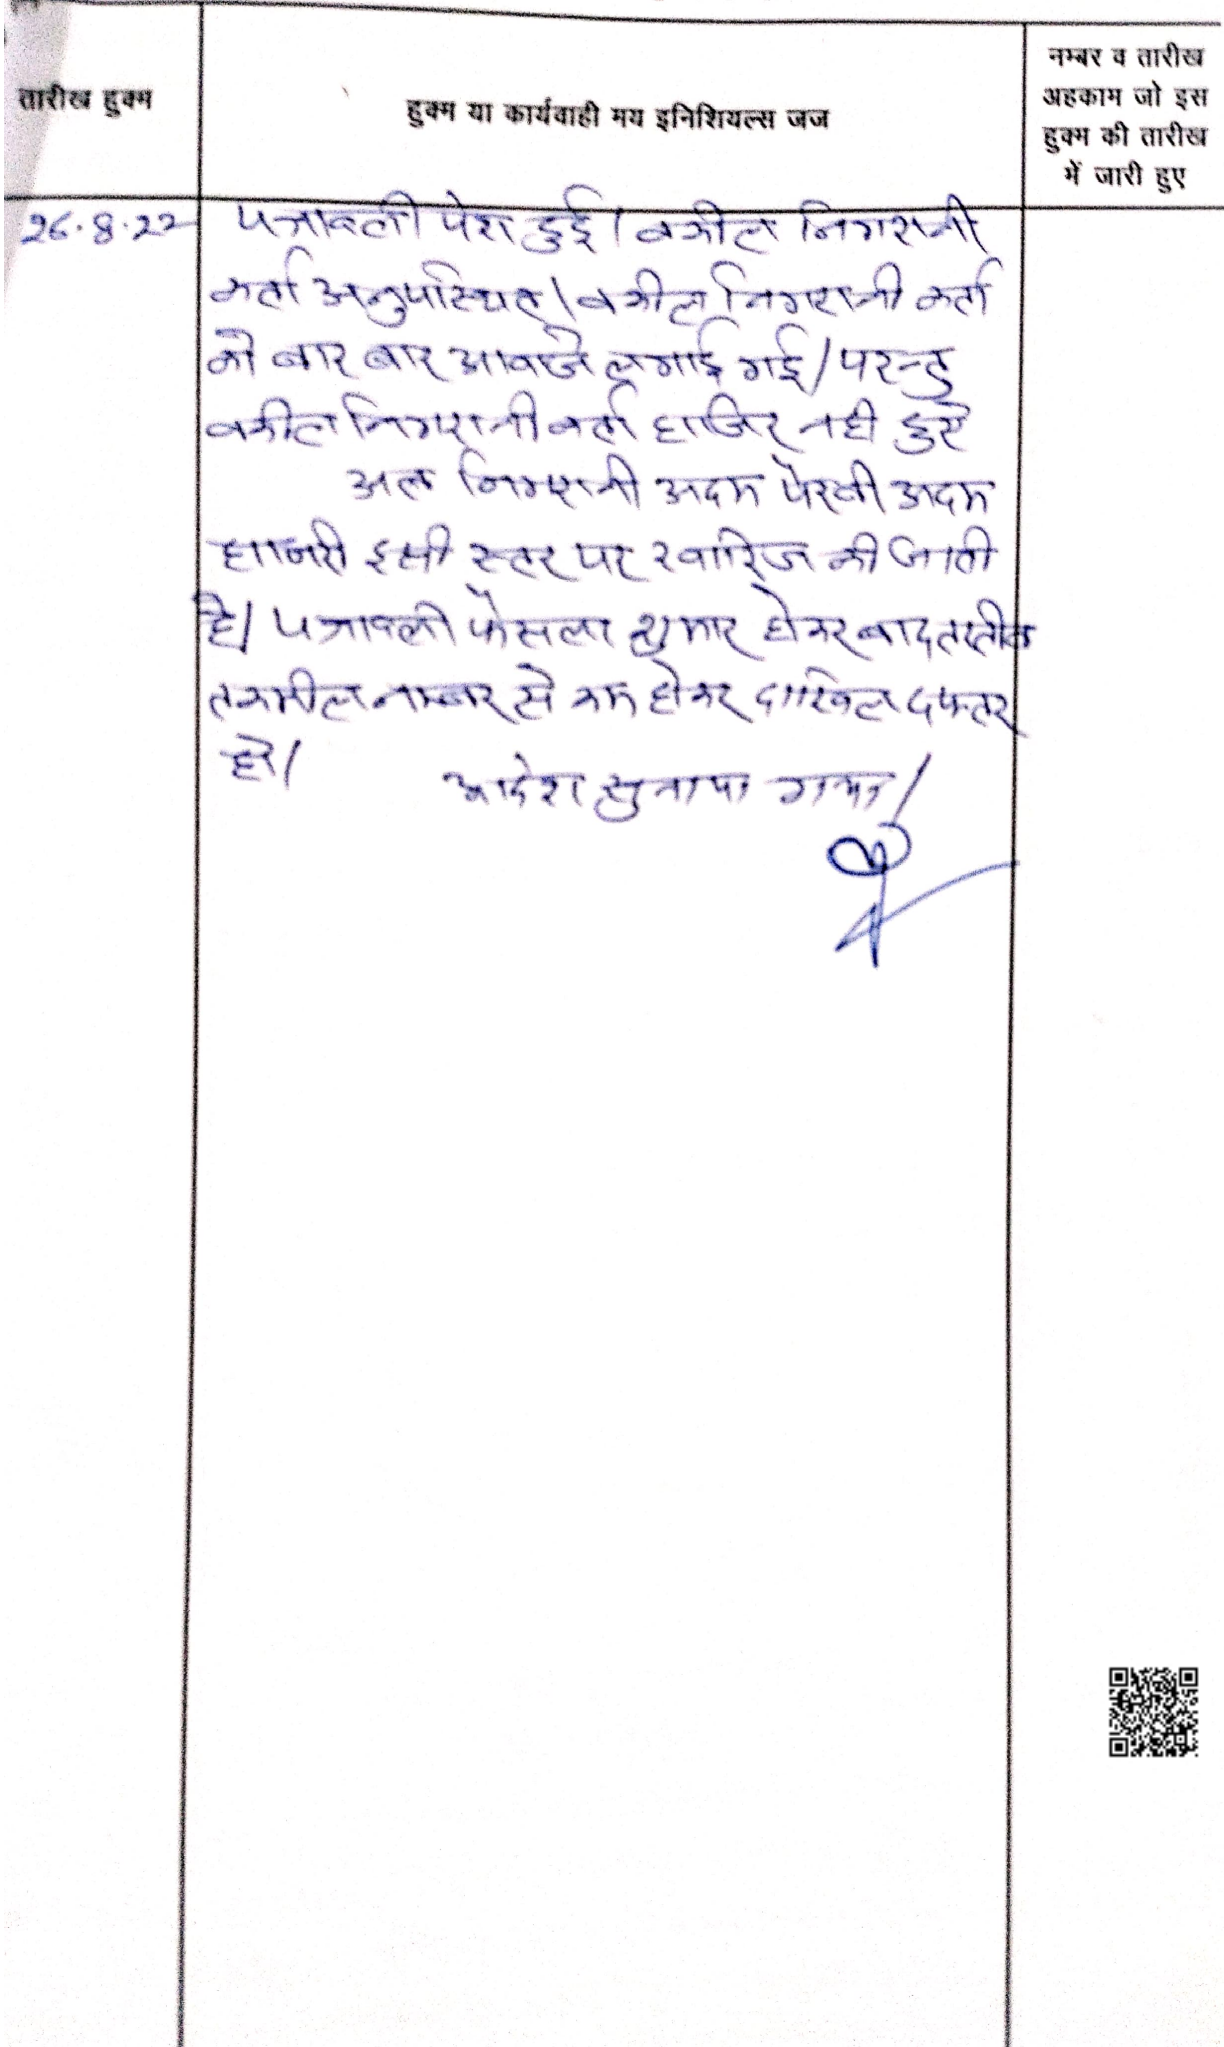 तारीख हुक्म
हुक्म या कार्यवाही मय इनिशियल्स जज
नम्बर व तारीख
अहकाम जो इस
हुक्म की तारीख
में जारी हुए
26.8.22
पत्रावली पेश हुई। वकील निगरानी
कर्ता अनुपस्थित। वकील निगरानी कर्ता
को बार बार आवाजे लगाई गई। परन्तु
वकील निगरानी कर्ता हाजिर नही हुए
अतः निगरानी अदम पैरवी अदम
हाजरी इसी स्तर पर खारिज की जाती
है। पत्रावली फैसला शुमार होकर बाद तरतीब
तकमील नम्बर से कम होकर दाखिल दफ्तर
हो।
आदेश सुनाया गया।